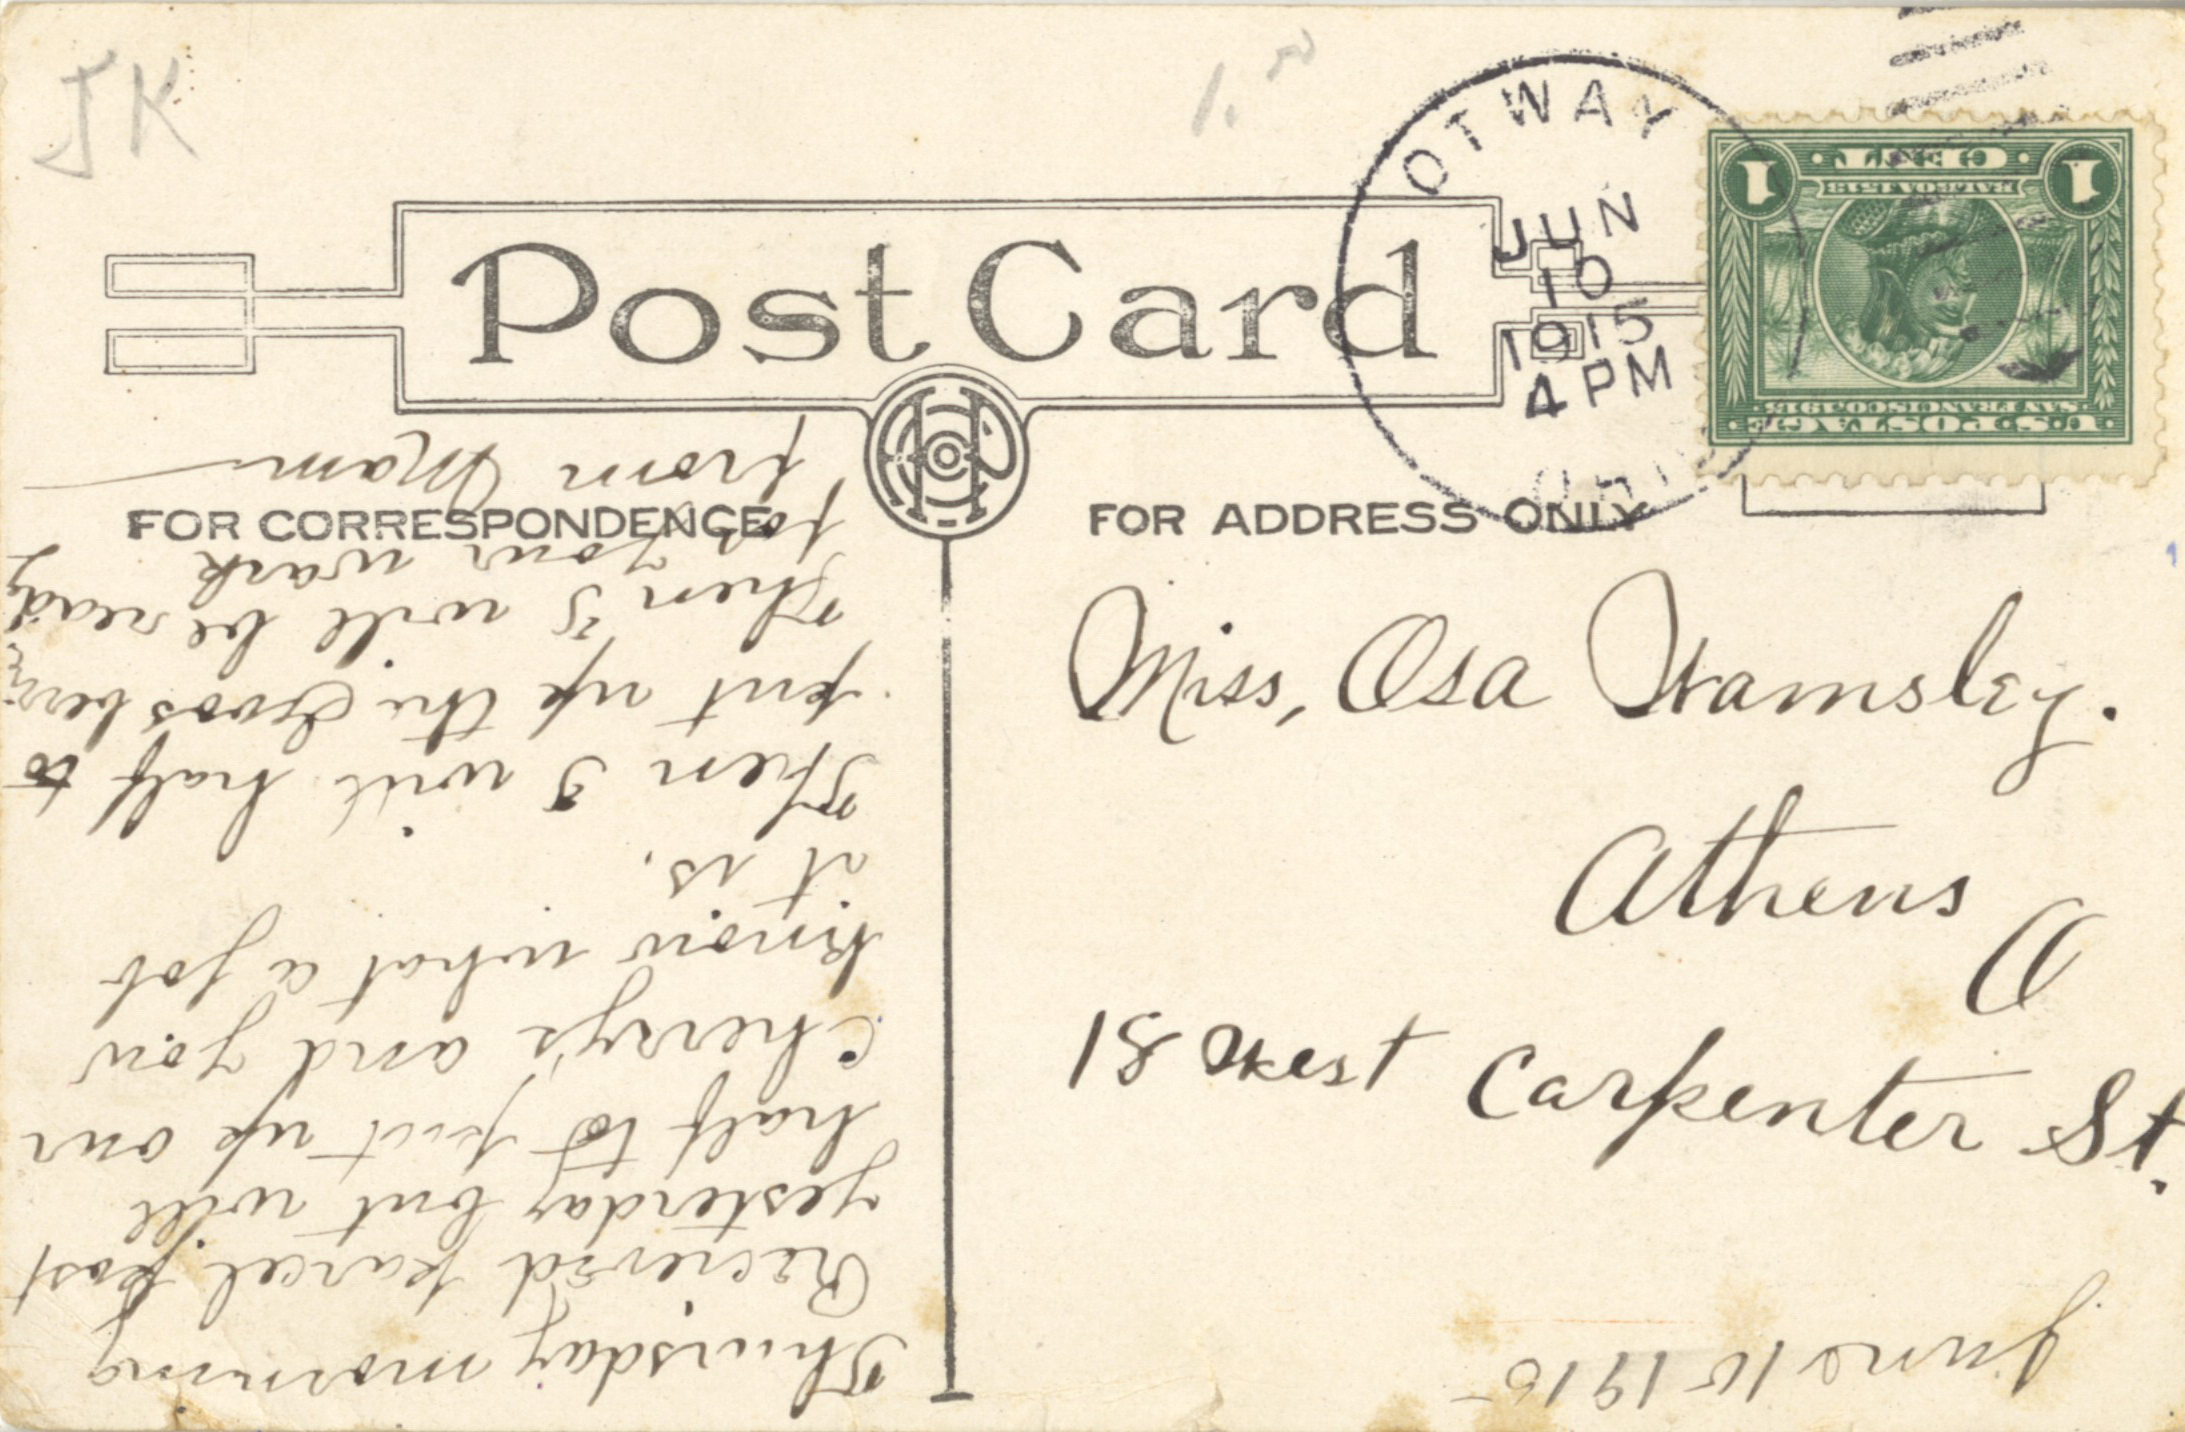 JK
1.00
OTWAY
JUN
10
1915
4 PM
OHIO
U.S. POSTAGE
SAN FRANCISCO 1915
BALBOA 1513
1 CENT 1
Post Card
FOR CORRESPONDENCE
FOR ADDRESS ONLY
Miss, Osa Wamsley.
Athens
O
18 West Carpenter St.
June 10 1915
Thursday morning
Recieved parcel post
yesterday but will
half to put up our
cherry's and you
know what a job
it is.
Then I will half to
put up the Goosberrys
then I will be ready
for your work
from Mam